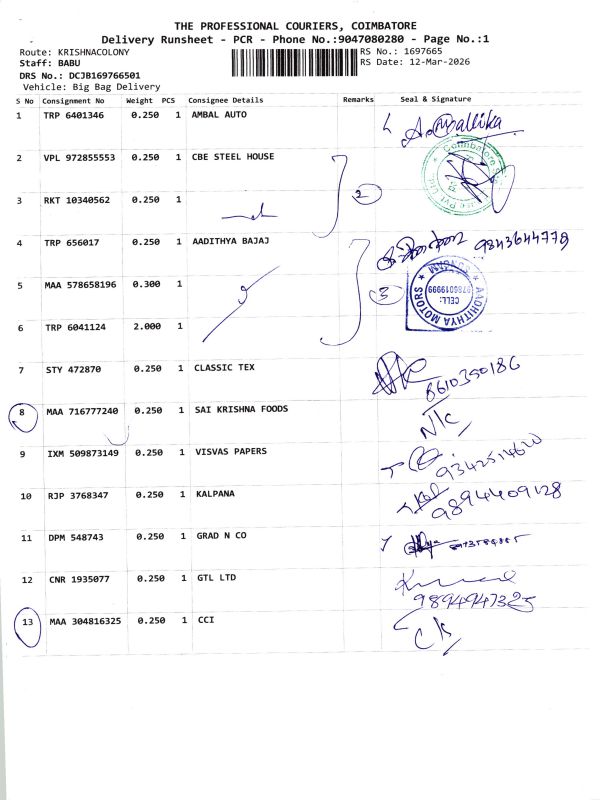 THE PROFESSIONAL COURIERS, COIMBATORE
Delivery Runsheet - PCR - Phone No.:9047080280 - Page No.:1
Route: KRISHNACOLONY
RS No.: 1697665
Staff: BABU
RS Date: 12-Mar-2026
DRS No.: DCJB169766501
Vehicle: Big Bag Delivery
S No Consignment No Weight PCS Consignee Details Remarks Seal & Signature
1 TRP 6401346 0.250 1 AMBAL AUTO
2 VPL 972855553 0.250 1 CBE STEEL HOUSE
3 RKT 10340562 0.250 1 2
4 TRP 656017 0.250 1 AADITHYA BAJAJ 9843644778
5 MAA 578658196 0.300 1 3
AADHITHYA MOTORS
CELL:
9786019999
6 TRP 6041124 2.000 1
7 STY 472870 0.250 1 CLASSIC TEX 8610350186
8 MAA 716777240 0.250 1 SAI KRISHNA FOODS N/c
9 IXM 509873149 0.250 1 VISVAS PAPERS 9342514620
10 RJP 3768347 0.250 1 KALPANA 9894409128
11 DPM 548743 0.250 1 GRAD N CO
12 CNR 1935077 0.250 1 GTL LTD 9894947325
13 MAA 304816325 0.250 1 CCI